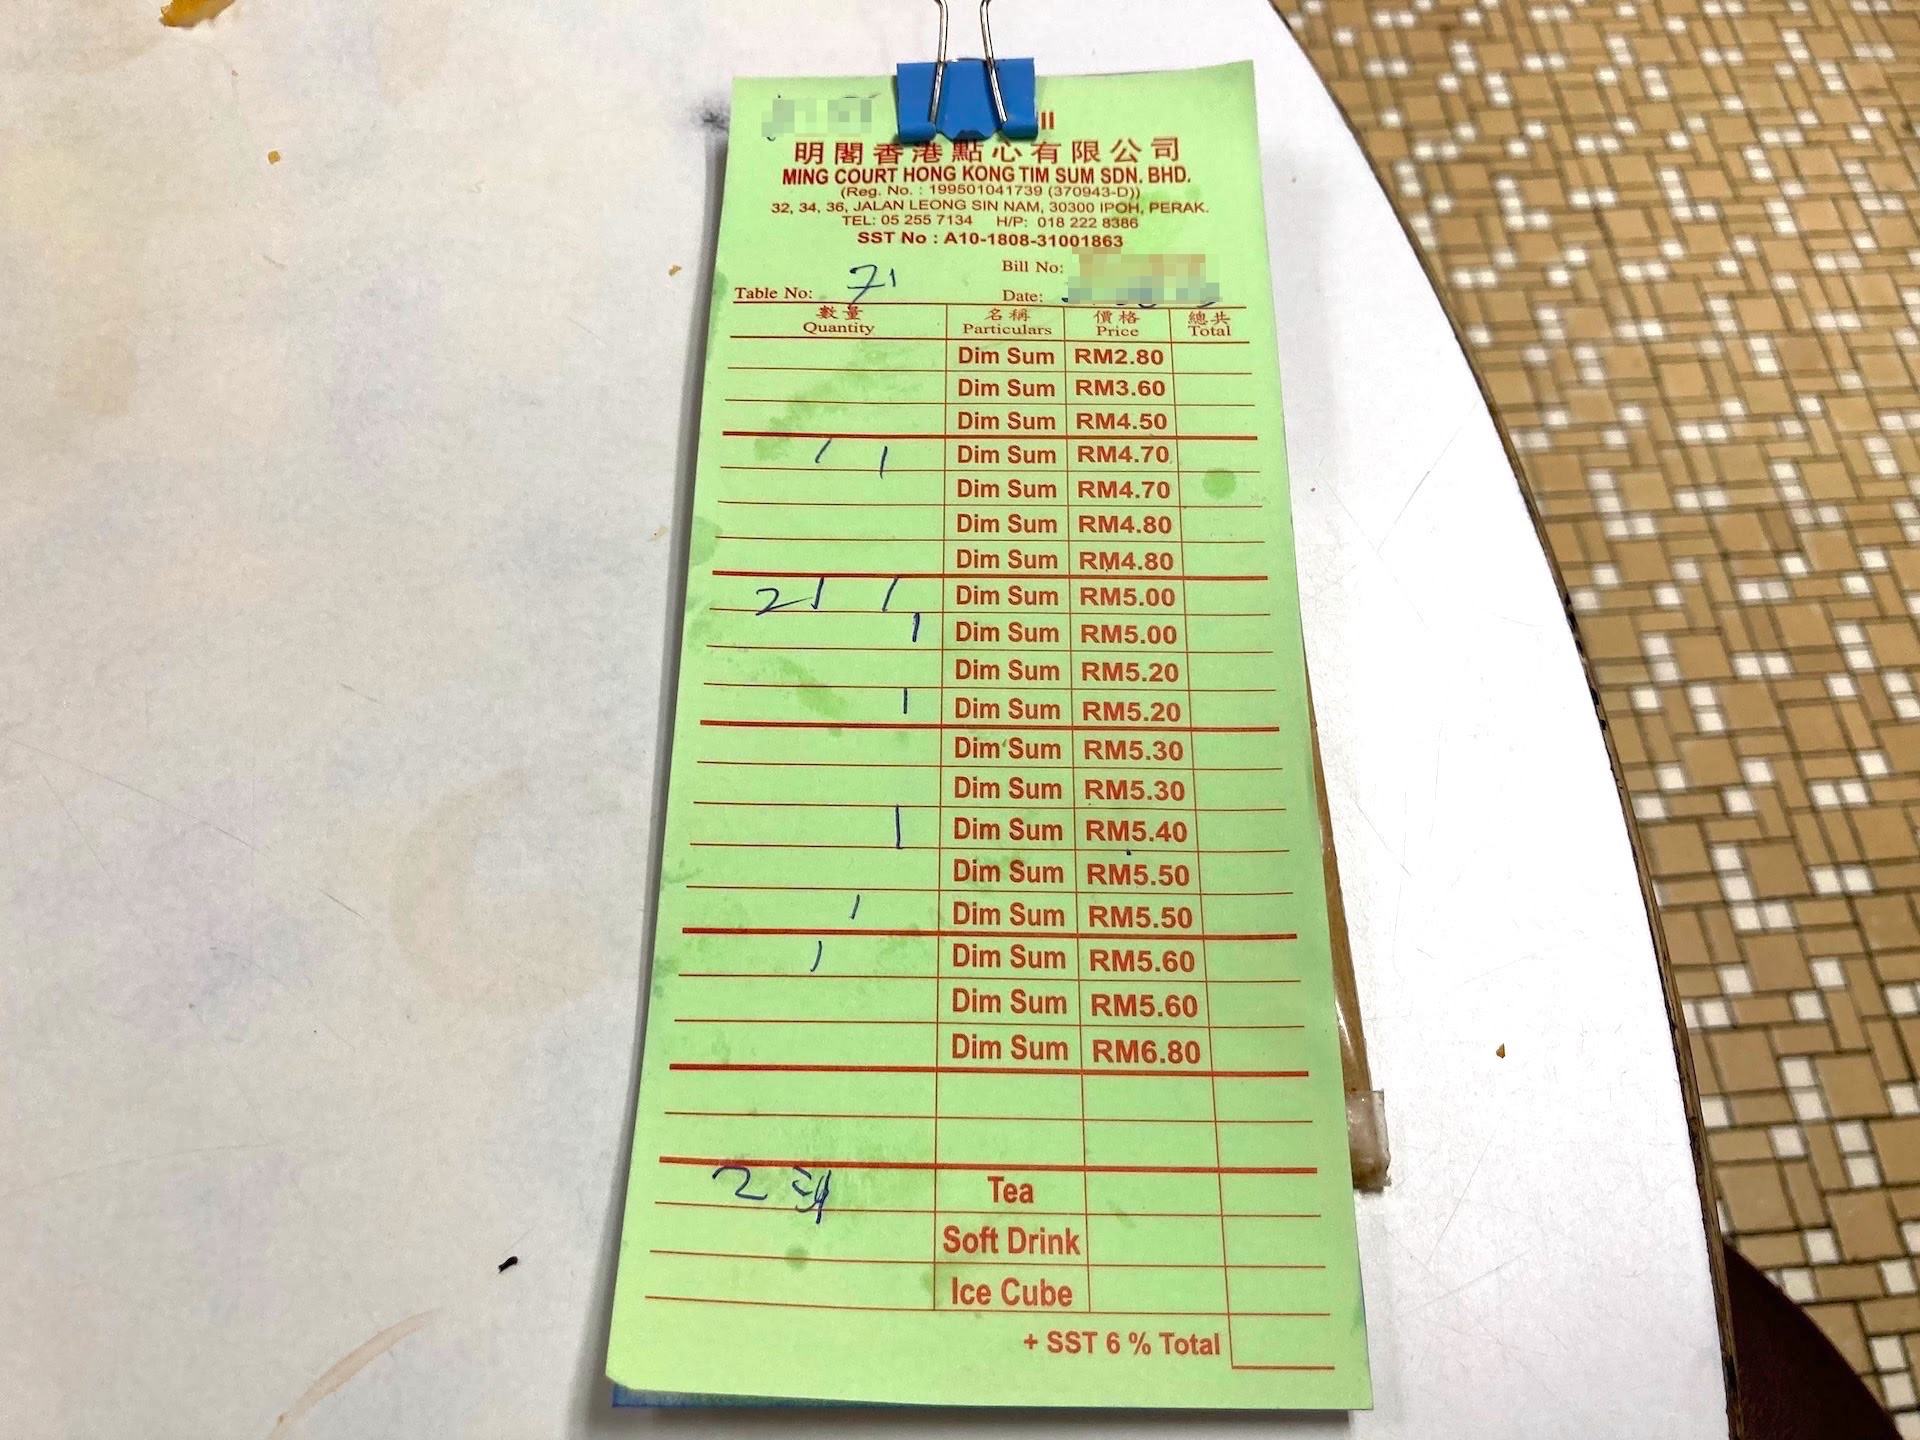 明閣香港點心有限公司
MING COURT HONG KONG TIM SUM SDN. BHD.
(Reg. No. : 199501041739 (370943-D))
32, 34, 36, JALAN LEONG SIN NAM, 30300 IPOH, PERAK.
TEL: 05 255 7134 H/P: 018 222 8386
SST No : A10-1808-31001863
Bill No:
Table No: 71 Date:
數量 名稱 價格 總共
Quantity Particulars Price Total
Dim Sum RM2.80
Dim Sum RM3.60
Dim Sum RM4.50
1 1 Dim Sum RM4.70
Dim Sum RM4.70
Dim Sum RM4.80
Dim Sum RM4.80
2 1 1 Dim Sum RM5.00
1 Dim Sum RM5.00
Dim Sum RM5.20
1 Dim Sum RM5.20
Dim Sum RM5.30
Dim Sum RM5.30
1 Dim Sum RM5.40
Dim Sum RM5.50
1 Dim Sum RM5.50
1 Dim Sum RM5.60
Dim Sum RM5.60
Dim Sum RM6.80
2 Tea
Soft Drink
Ice Cube
+ SST 6 % Total